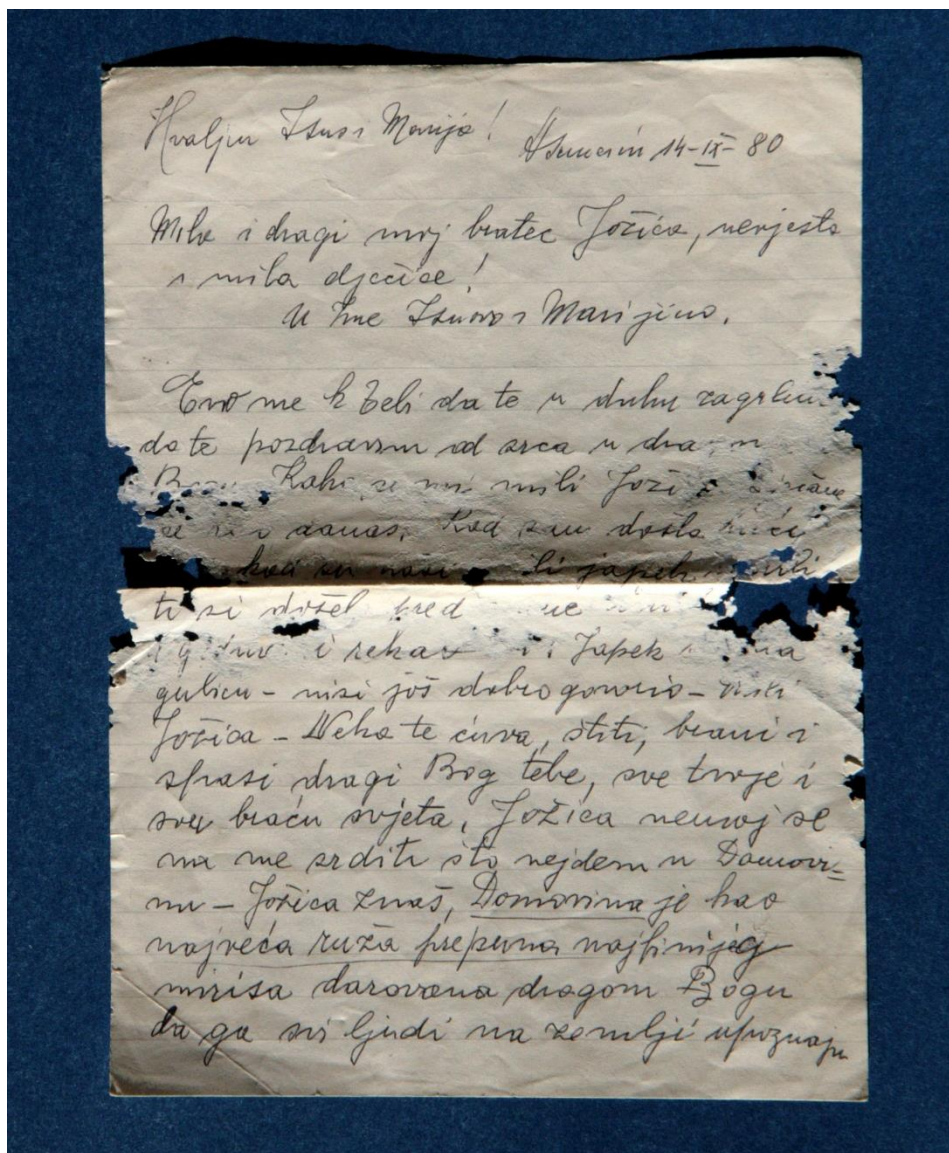 Hvaljen Isus i Marija!
Asuncion 14-IX-80
Mili i dragi moj bratec Jožica, nevjesta
i mila dječice!
U Ime Isusovo i Marijino.
Evo me k Tebi da te u duhu zagrlim
da te pozdravim od srca u
Kako se mili
danas. Kad sam došla kući
japek
ti si došel pred
i rekao Japek
gubicu - nisi još dobro govorio -
Jožica - Neka te čuva, štiti, brani i
spasi dragi Bog tebe, sve tvoje i
svu braću svjeta. Jožica nemoj se
na me srditi što nejdem u Domovi=
nu - Jožica znaš, Domovina je kao
najveća ruža prepuna najfinijeg
mirisa darovana dragom Bogu
da ga svi ljudi na zemlji upoznaju